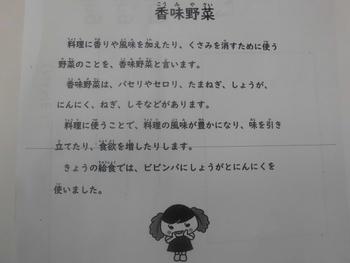 香味野菜
料理に香りや風味を加えたり、くさみを消すために使う
野菜のことを、香味野菜と言います。
香味野菜は、パセリやセロリ、たまねぎ、しょうが、
にんにく、ねぎ、しそなどがあります。
料理に使うことで、料理の風味が豊かになり、味を引き
立てたり、食欲を増したりします。
きょうの給食では、ビビンバにしょうがとにんにくを
使いました。